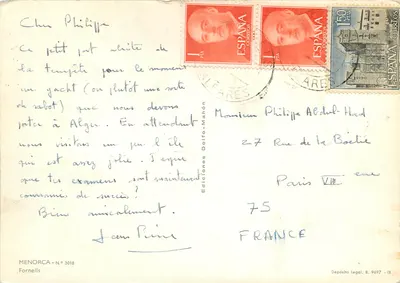 Cher Philippe
Ce ptit port abrite de
la tempête pour le moment
un yacht (ou plutôt une sorte
de sabot) que nous devons
porter à Alger. En attendant
nous visitons un peu l'île
qui est assez jolie. J'espère
que tes examens sont maintenant
couronnés de succès?
Bien amicalement.
Jean Pierre
MENORCA - N.º
Fornells
Ediciones Galfa-Mahón
1
PTA
ESPAÑA
1
PTA
ESPAÑA
1'50
PTAS
ESPAÑA
Monsieur Philippe Abdul-Hed
27 Rue de la Boétie
Paris VIII eme
75
FRANCE